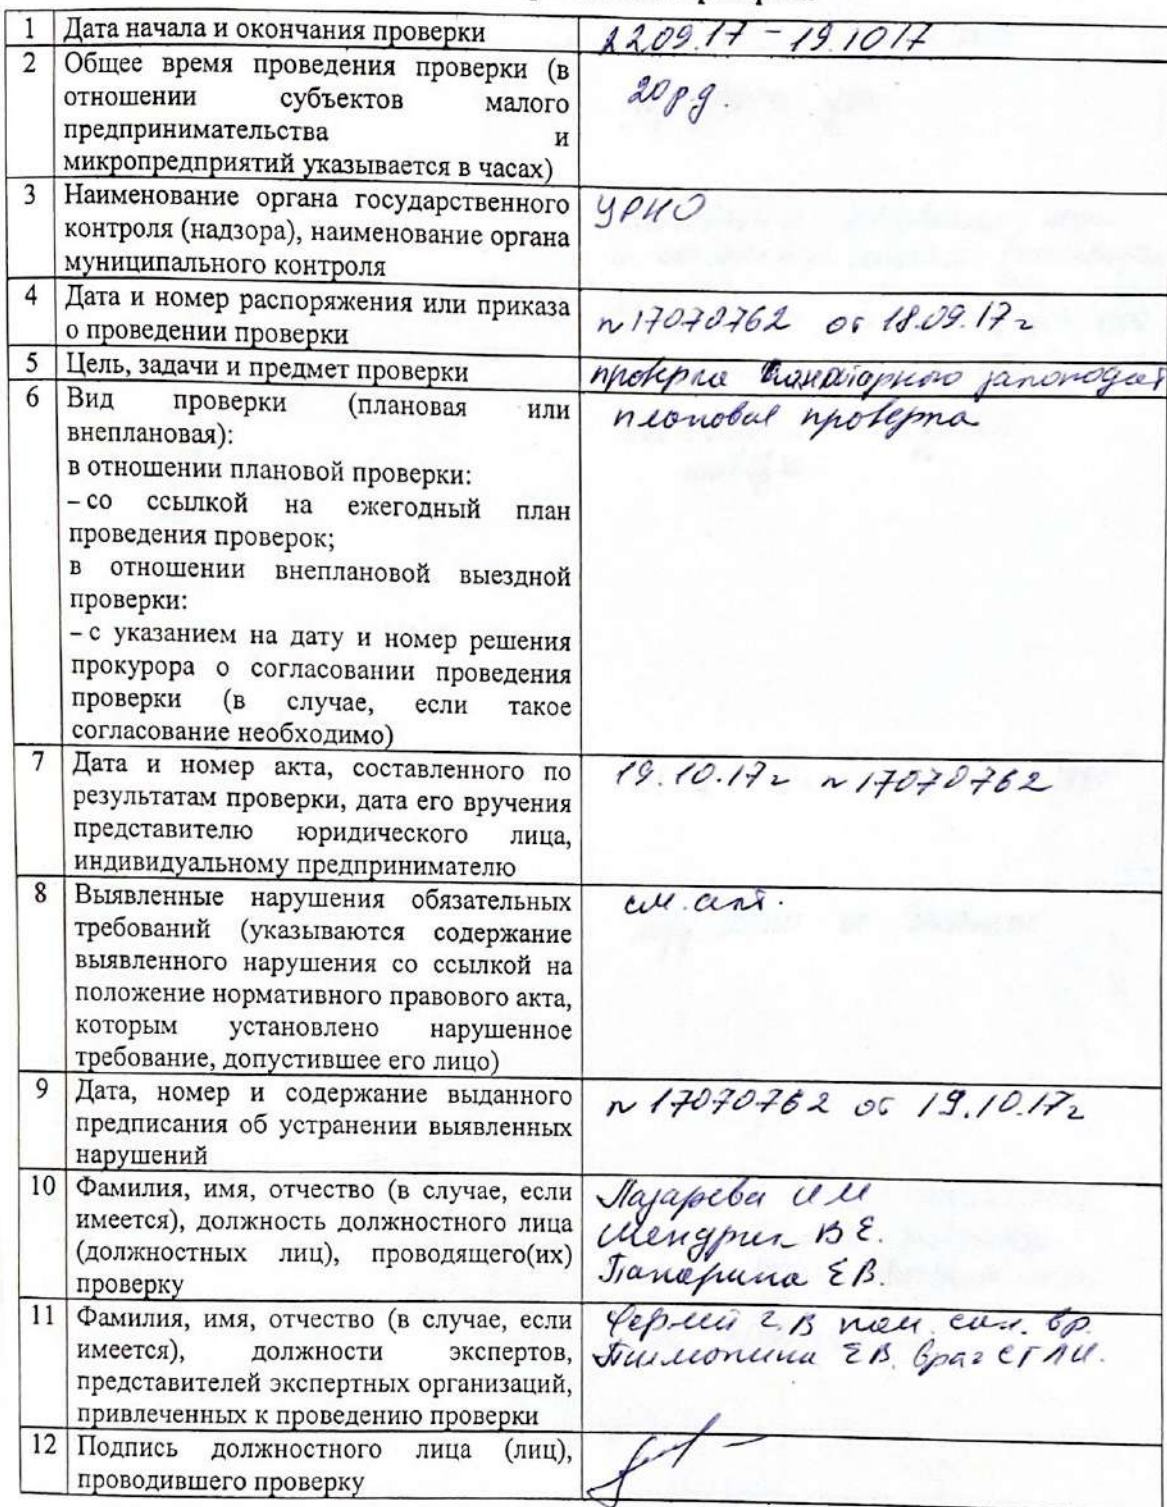 1 Дата начала и окончания проверки 22.09.17 - 19.10 17
2 Общее время проведения проверки (в
отношении субъектов малого
предпринимательства и
микропредприятий указывается в часах)
20 р.д.
3 Наименование органа государственного
контроля (надзора), наименование органа
муниципального контроля
УРНО
4 Дата и номер распоряжения или приказа
о проведении проверки
n 17070762 от 18.09.17г
5 Цель, задачи и предмет проверки проверка санитарного законодат
6 Вид проверки (плановая или
внеплановая):
в отношении плановой проверки:
– со ссылкой на ежегодный план
проведения проверок;
в отношении внеплановой выездной
проверки:
– с указанием на дату и номер решения
прокурора о согласовании проведения
проверки (в случае, если такое
согласование необходимо)
плановая проверка
7 Дата и номер акта, составленного по
результатам проверки, дата его вручения
представителю юридического лица,
индивидуальному предпринимателю
19.10.17г n 17070762
8 Выявленные нарушения обязательных
требований (указываются содержание
выявленного нарушения со ссылкой на
положение нормативного правового акта,
которым установлено нарушенное
требование, допустившее его лицо)
см. акт.
9 Дата, номер и содержание выданного
предписания об устранении выявленных
нарушений
n 17070762 от 19.10.17г
10 Фамилия, имя, отчество (в случае, если
имеется), должность должностного лица
(должностных лиц), проводящего(их)
проверку
Лазарева И М
Шендрик В Е.
Папарина Е В.
11 Фамилия, имя, отчество (в случае, если
имеется), должности экспертов,
представителей экспертных организаций,
привлеченных к проведению проверки
Г. В пом. сан. вр.
Е В. врач
12 Подпись должностного лица (лиц),
проводившего проверку